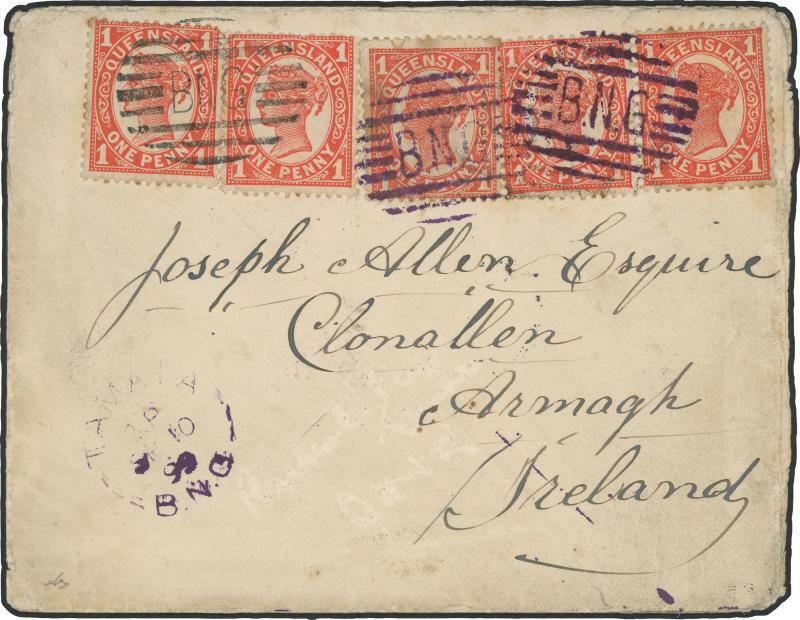 1 QUEENSLAND 1
1 ONE PENNY
QUEENSLAND 1
1 ONE PENNY 1
1 QUEENSLAND
1 1
QUEENSLAND
1 QUEENSLAND 1
ONE PENNY 1
B.N.G
Joseph Allen Esquire
Clonallen
Armagh
Ireland
TAMATA
10
B.N.G